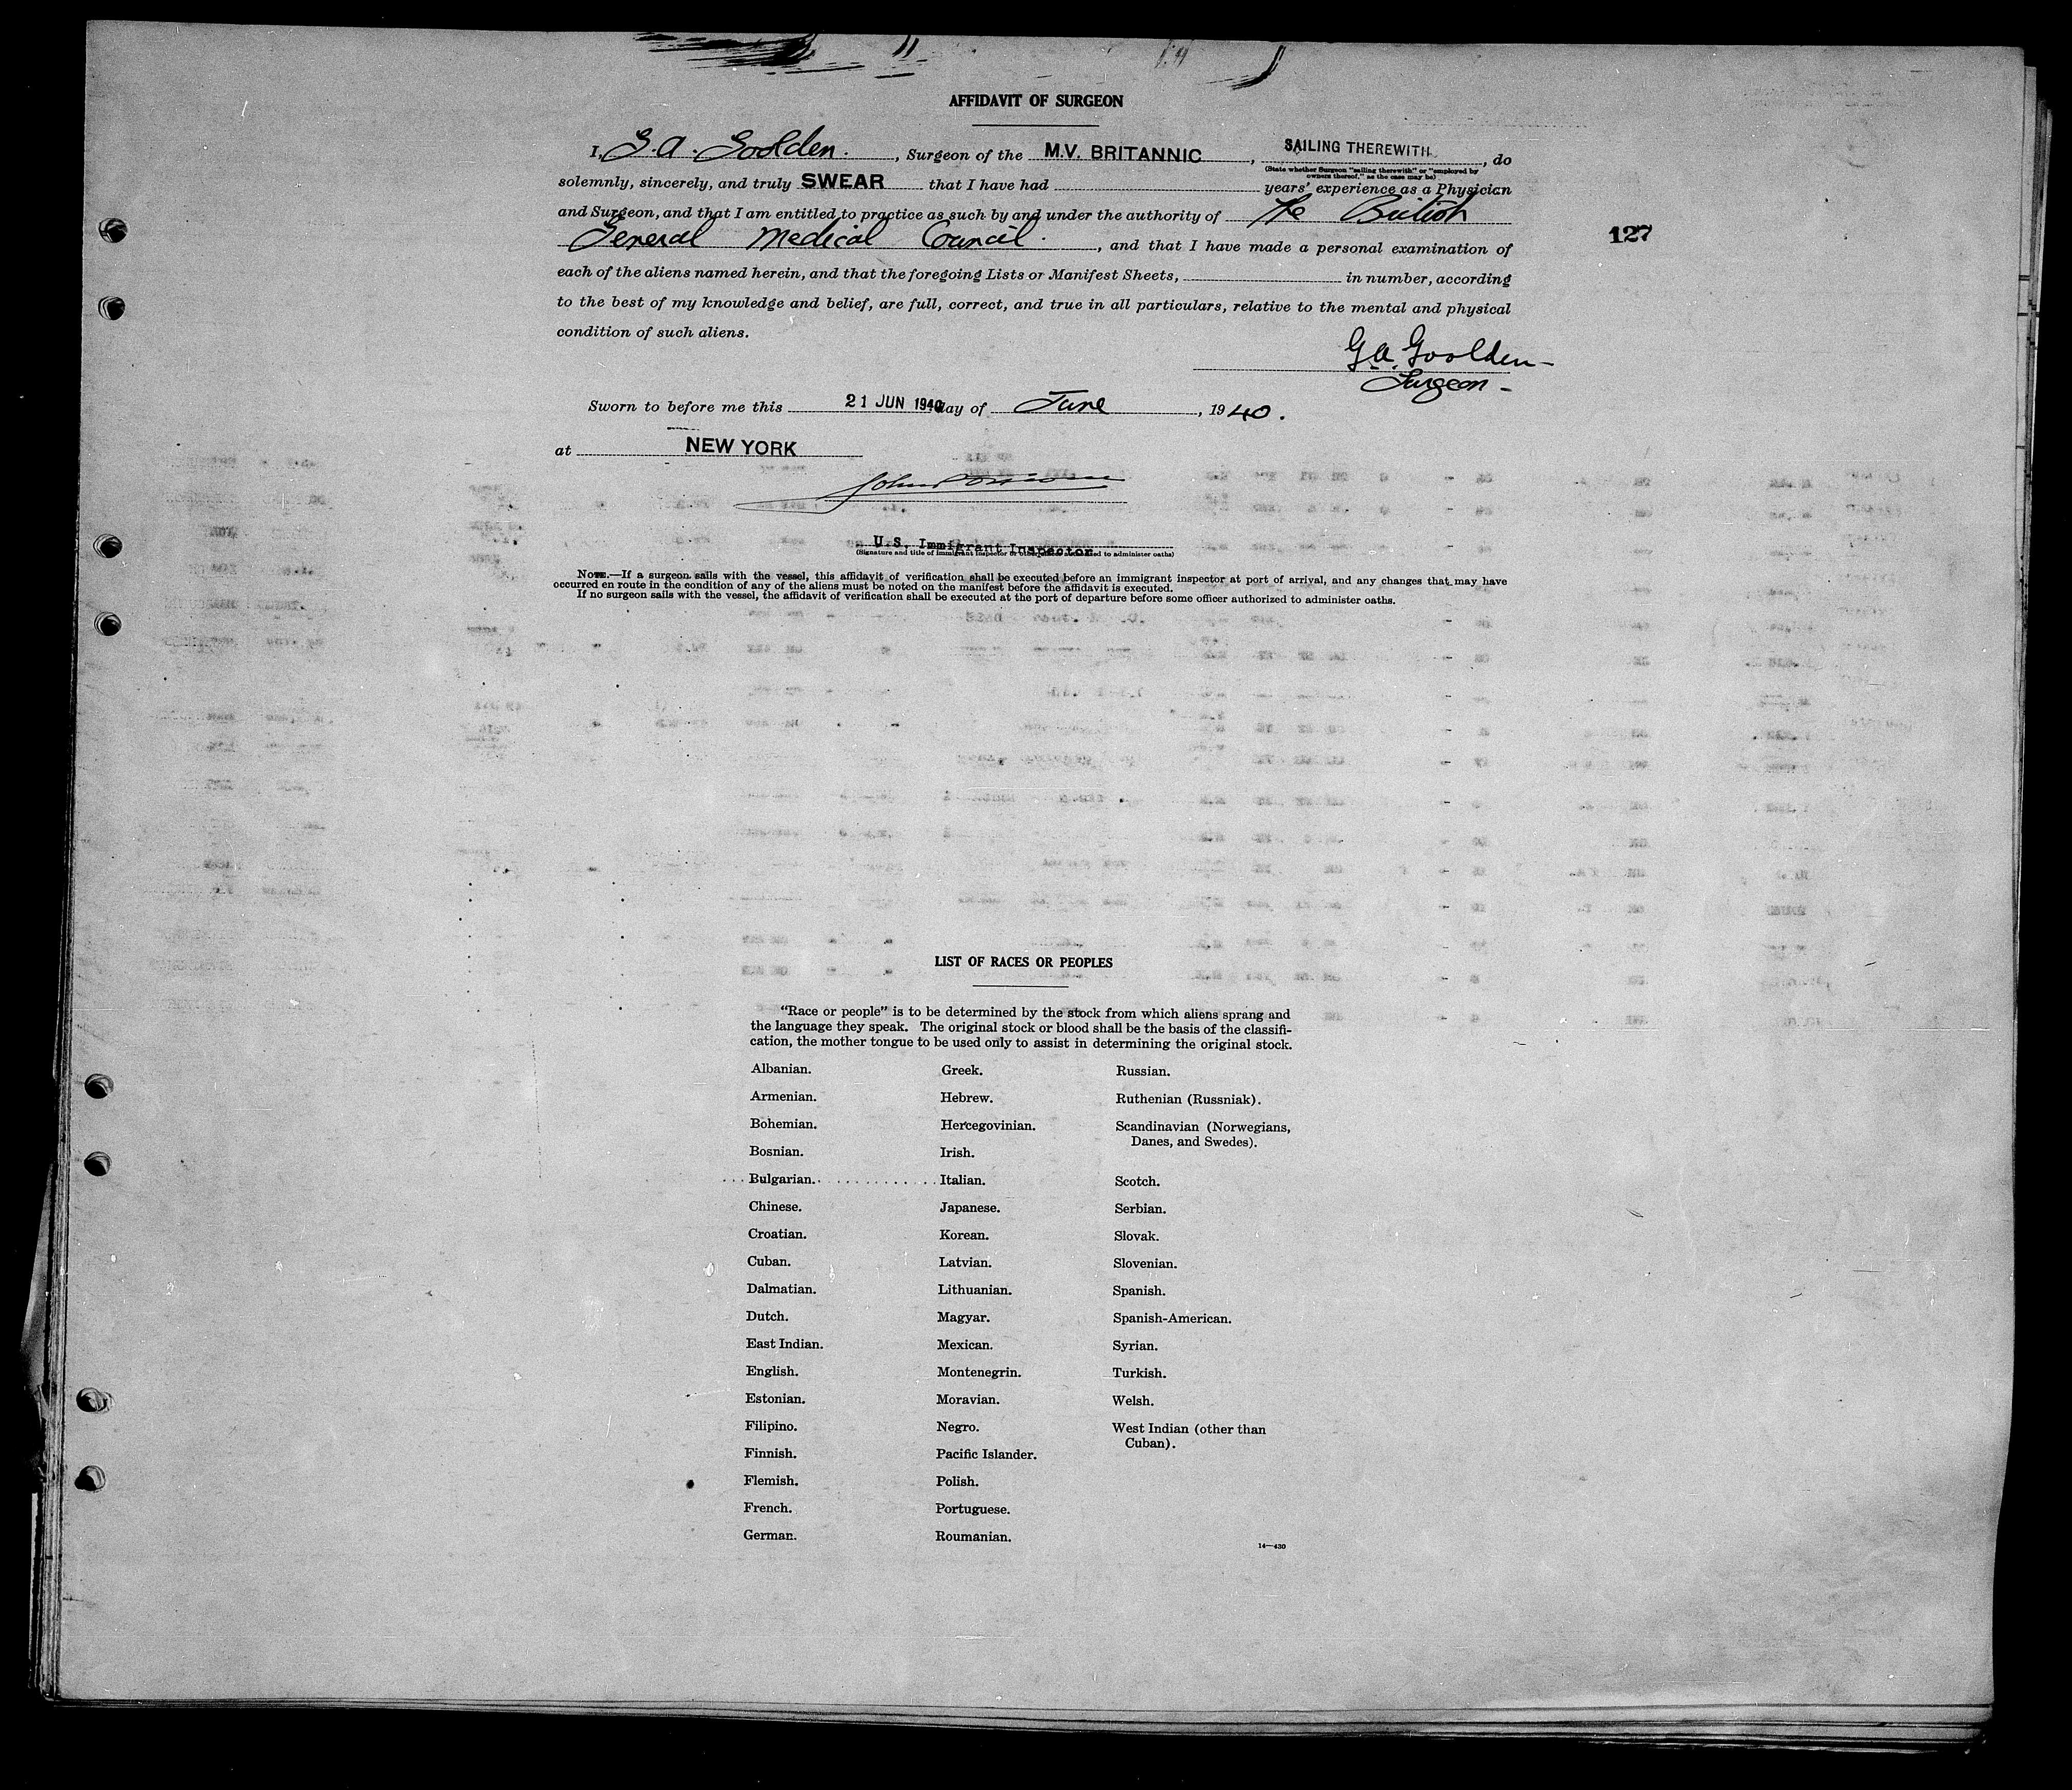 AFFIDAVIT OF SURGEON
I, G. A. Goolden., Surgeon of the M.V. BRITANNIC, SAILING THEREWITH, do
(State whether Surgeon "sailing therewith" or "employed by
owners thereof," as the case may be)
solemnly, sincerely, and truly SWEAR that I have had years' experience as a Physician
and Surgeon, and that I am entitled to practice as such by and under the authority of The British
General Medical Council., and that I have made a personal examination of
127
each of the aliens named herein, and that the foregoing Lists or Manifest Sheets, in number, according
to the best of my knowledge and belief, are full, correct, and true in all particulars, relative to the mental and physical
condition of such aliens.
G A. Goolden
Surgeon
Sworn to before me this 21 JUN 1940 day of June, 1940.
at NEW YORK
U.S. Immigrant Inspector
(Signature and title of immigrant inspector or other officer authorized to administer oaths)
NOTE.—If a surgeon sails with the vessel, this affidavit of verification shall be executed before an immigrant inspector at port of arrival, and any changes that may have
occurred en route in the condition of any of the aliens must be noted on the manifest before the affidavit is executed.
If no surgeon sails with the vessel, the affidavit of verification shall be executed at the port of departure before some officer authorized to administer oaths.
LIST OF RACES OR PEOPLES
"Race or people" is to be determined by the stock from which aliens sprang and
the language they speak. The original stock or blood shall be the basis of the classifi-
cation, the mother tongue to be used only to assist in determining the original stock.
Albanian.
Armenian.
Bohemian.
Bosnian.
Bulgarian.
Chinese.
Croatian.
Cuban.
Dalmatian.
Dutch.
East Indian.
English.
Estonian.
Filipino.
Finnish.
Flemish.
French.
German.
Greek.
Hebrew.
Hercegovinian.
Irish.
Italian.
Japanese.
Korean.
Latvian.
Lithuanian.
Magyar.
Mexican.
Montenegrin.
Moravian.
Negro.
Pacific Islander.
Polish.
Portuguese.
Roumanian.
Russian.
Ruthenian (Russniak).
Scandinavian (Norwegians,
Danes, and Swedes).
Scotch.
Serbian.
Slovak.
Slovenian.
Spanish.
Spanish-American.
Syrian.
Turkish.
Welsh.
West Indian (other than
Cuban).
14—430